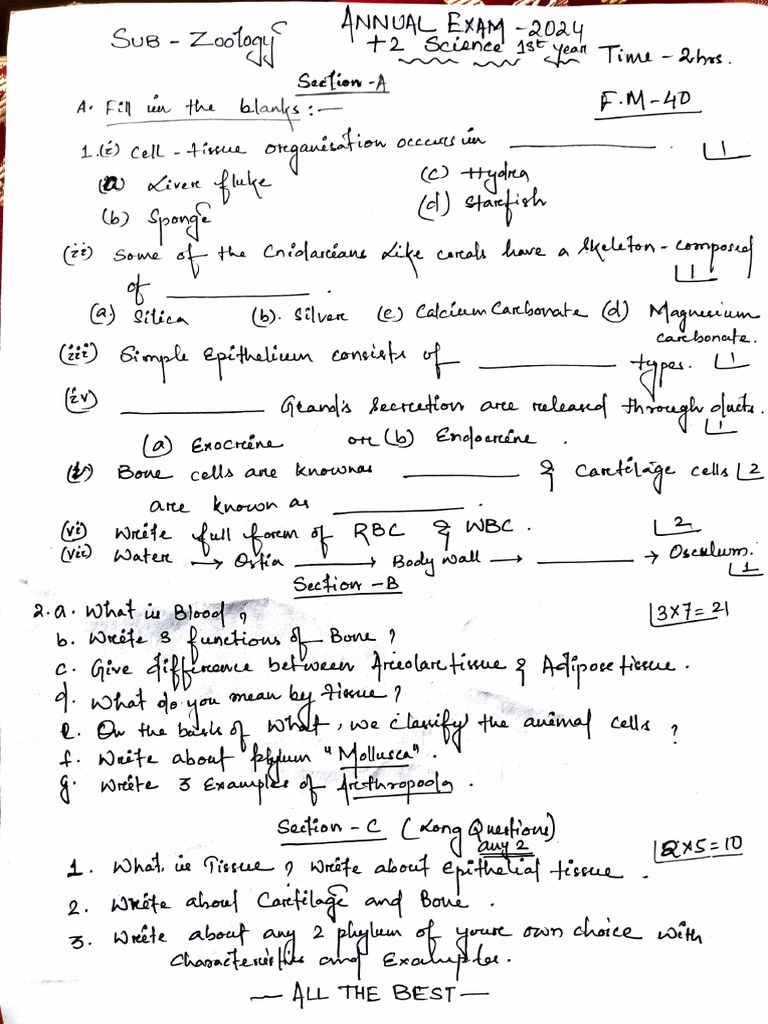 SUB - Zoology
ANNUAL EXAM - 2024
+2 Science 1st year
Time - 2hrs.
Section - A
F.M - 40
A. Fill in the blanks :—
1.(i) Cell - tissue organisation occurs in __________ . 1
(a) Liver fluke (c) Hydra
(b) Sponge (d) Starfish
(ii) Some of the Cnidarians like corals have a skeleton - composed
of __________ . 1
(a) Silica (b). Silver (c) Calcium Carbonate (d) Magnesium
carbonate.
(iii) Simple Epithelium consists of __________ types. 1
(iv) __________ Gland's secretion are released through ducts.
1
(a) Exocrine or (b) Endocrine .
(v) Bone cells are known as __________ & Cartilage cells 2
are known as __________ .
(vi) Write full form of RBC & WBC . 2
(vii) Water → Ostia → Body wall → __________ → Osculum.
1
Section - B
2.a. What is Blood ? 3x7=21
b. Write 3 functions of Bone ?
c. Give difference between Areolar tissue & Adipose tissue .
d. What do you mean by tissue ?
e. On the basis of what, we classify the animal cells ?
f. Write about phylum "Mollusca" .
g. Write 3 Examples of Arthropoda .
Section - C (Long Questions)
any 2
2x5=10
1. What is Tissue ? Write about Epithelial tissue .
2. Write about Cartilage and Bone .
3. Write about any 2 phylum of your own choice with
Characteristics and Examples.
— ALL THE BEST —